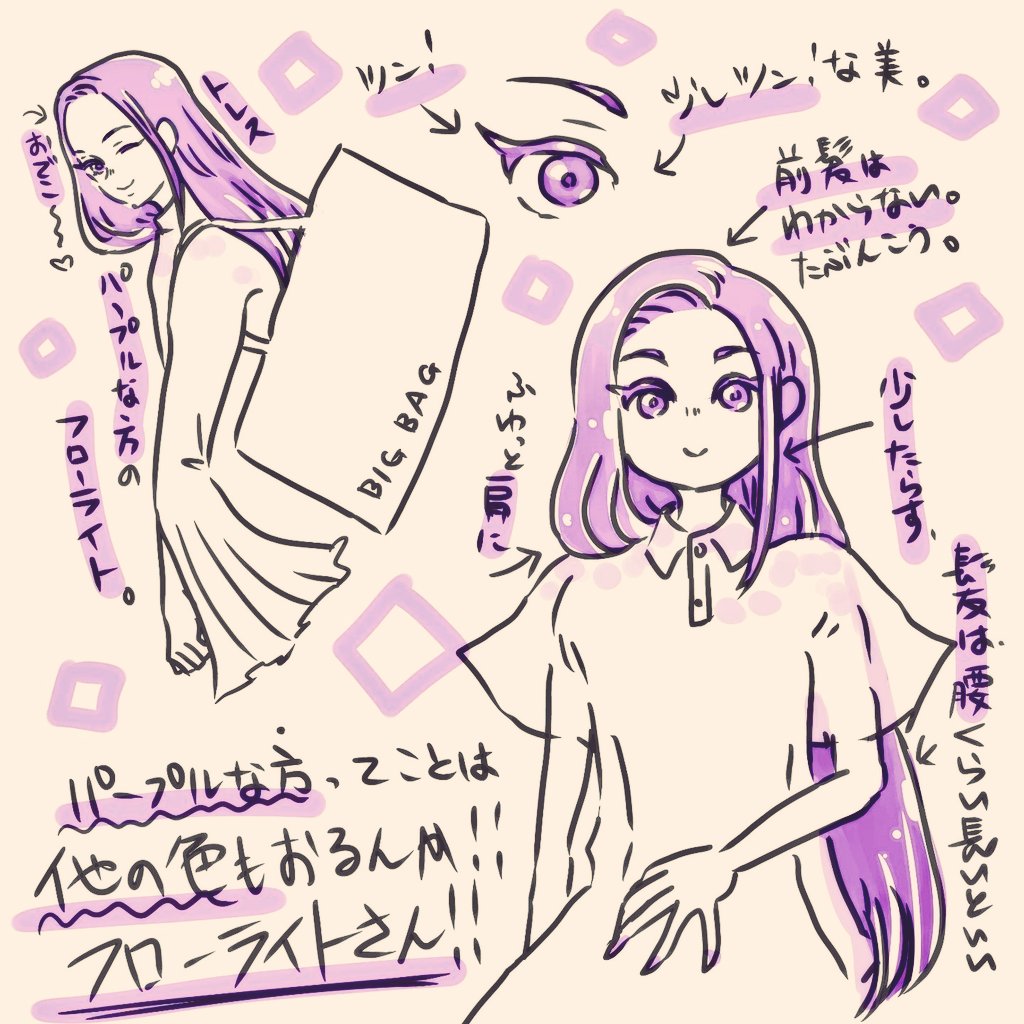 トレス
おでこ〜♡
パープルな方の
フローライト。
BIG BAG
ツン!
ツレツン!な美。
前髪は
わからない。
たぶんこう。
ふわっと肩に
少したらす。
髪は腰くらい長いといい
パープルな方ってことは
他の色もおるんや!!
フローライトさん!!